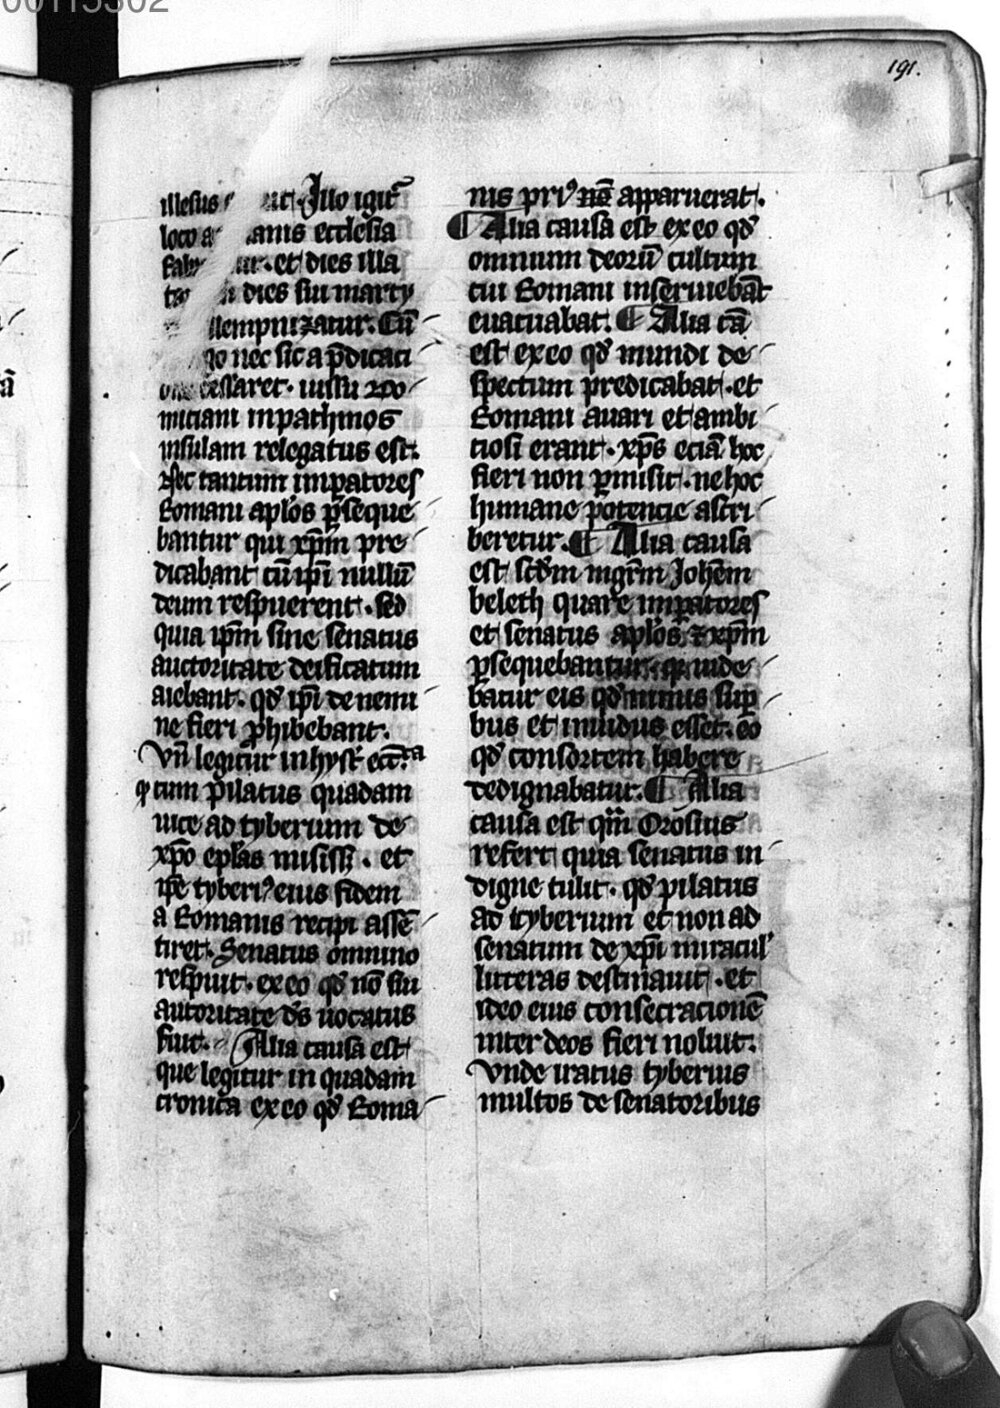 00115302
191.
illesus ut. Illo igit᷑
loco anis ecclesia
et dies illa
dies sui marty
sollempnizatur. Cū
go nec sic a p̄dicaci
one cessaret. iussu Do
miciani in pathmos
insulam relegatus est.
Nec tantum imꝑatores
Romani apl̓os ꝑseque
bantur qui xp̄m pre
dicabant cū ip̄i nullū
deum respuerent. sed
quia ip̄m sine senatus
auctoritate deificatum
aiebant. qd̓ ip̄i de nemi
ne fieri ꝓhibebant.
Vn̄ legitur in hyst᷑ ecc̄.ca
ꝙ cum pilatus quadam
uice ad tyberium de
xp̄o ep̄las misiss;. et
ip̄e tyberiꝰ eius fidem
a Romanis recipi assē
tiret. Senatus omnino
respuit. ex eo qd̓ nō sui
autoritate de᷒ uocatus
fuit. Alia causa est
que legitur in quadam
cronica ex eo qd̓ Roma
nis priꝰ nō apparuerat.
¶ Alia causa est ex eo qd̓
omnium deorū cultum
cui Romani inseruiebāt
euacuabat. ¶ Alia cā
est ex eo qd̓ mundi de
spectum predicabat. et
Romani auari et ambi
ciosi erant. xp̄s eciā hoc
fieri non ꝑmisit. ne hoc
humane potencie ascri
beretur. ¶ Alia causa
est scd̓m mgr̄m Joh̄em
beleth quare imꝑatores
et senatus apl̓os ⁊ xp̄m
ꝑsequebantur. ꝙ uide
batur eis qd̓ nimis suꝑ
bus et inuidus esset. eo
qd̓ consortem habere
dedignabatur. ¶ Alia
causa est qm̄ Orosius
refert quia senatus in
digne tulit. qd̓ pilatus
ad tyberium et non ad
senatum de xp̄i miracul̓
litteras destinauit. et
ideo eius consecracionē
inter deos fieri noluit.
Vnde iratus tyberius
multos de senatoribus